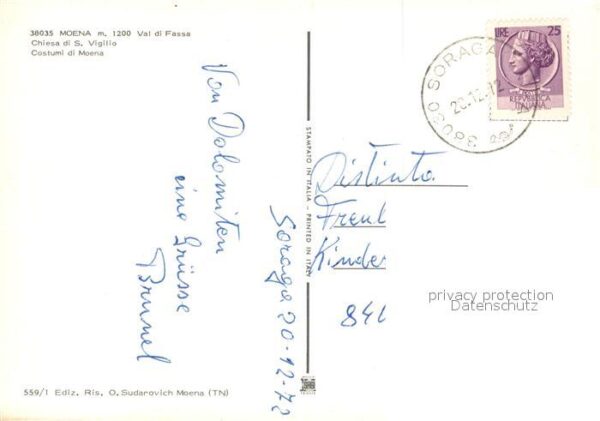 38035 MOENA m. 1200 Val di Fassa
Chiesa di S. Vigilio
Costumi di Moena
LIRE 25
REPVBBLICA
ITALIANA
38030 SORAGA
20.12.72
Von Dolomiten
eine Grüsse
Brunel
Soraga 20-12-72
STAMPATO IN ITALIA - PRINTED IN ITALY
Distinta
Kinder
privacy protection
Datenschutz
559/1 Ediz. Ris. O. Sudarovich Moena (TN)